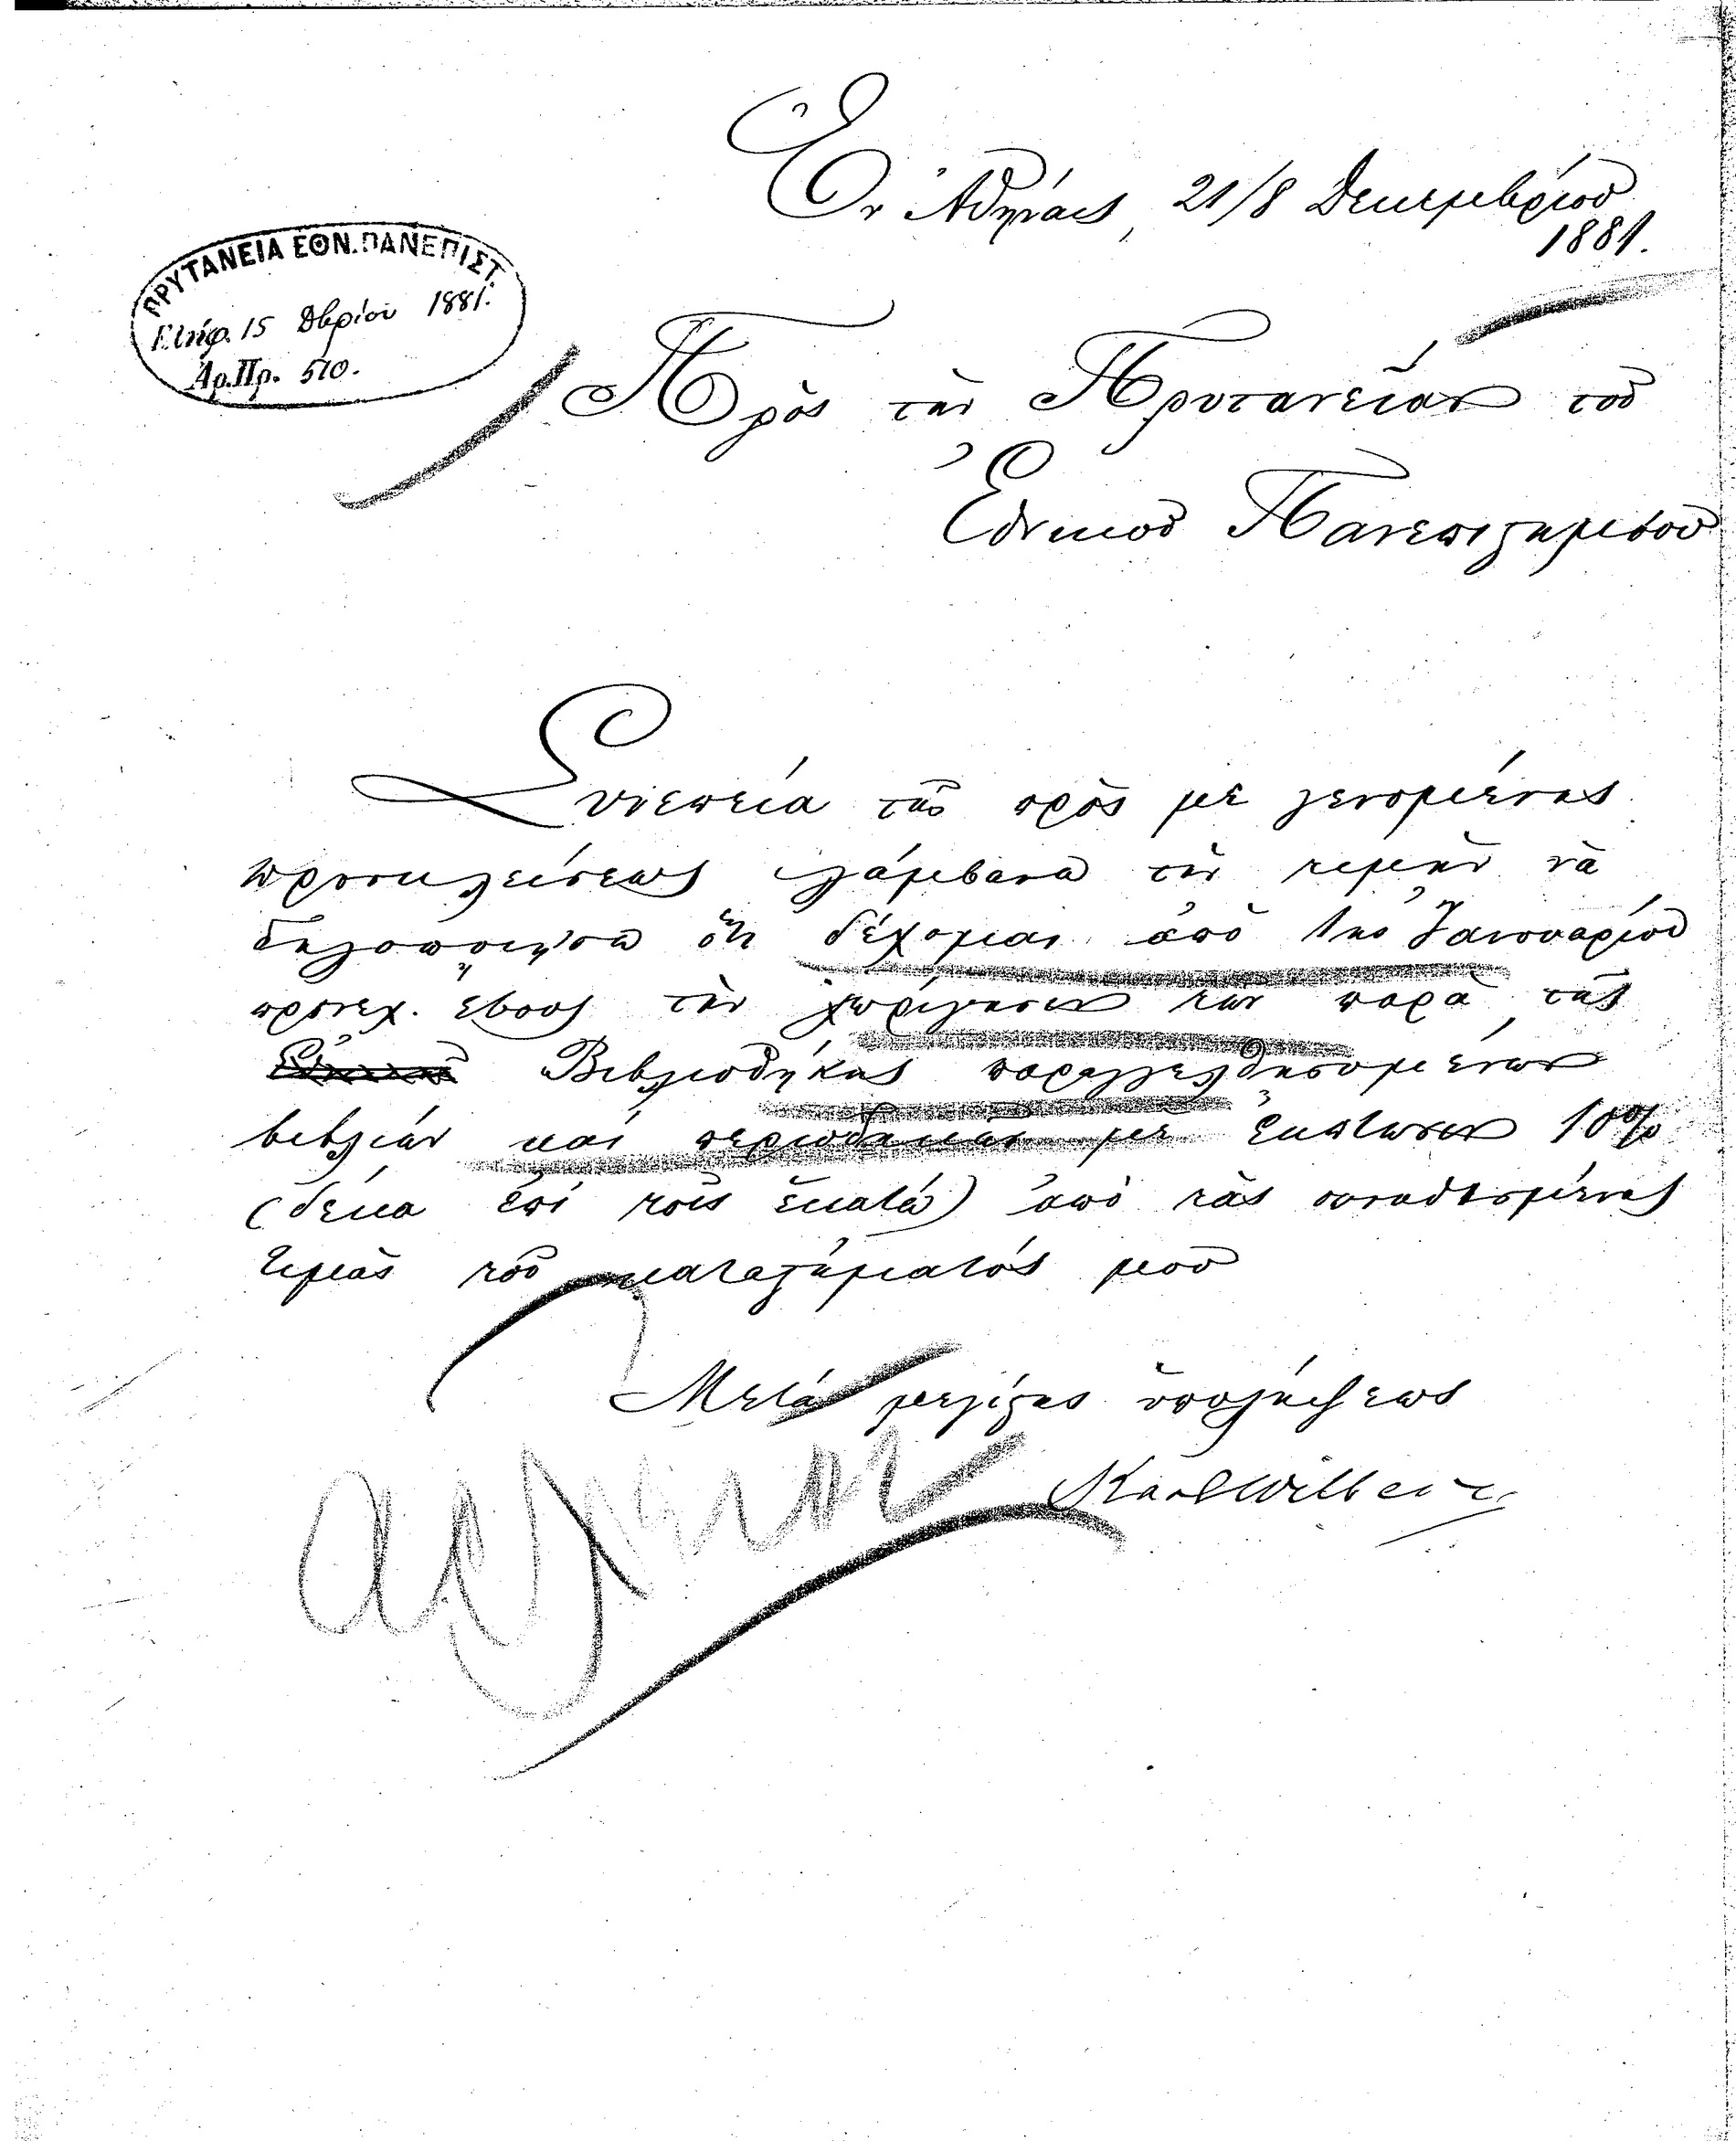 Ἐν Ἀθήναις, 21/8 Δεκεμβρίου
1881.
ΠΡΥΤΑΝΕΙΑ ΕΘΝ. ΠΑΝΕΠΙΣΤ.
Ἐλήφ. 15 Δβρίου 1881.
Ἀρ. Πρ. 510.
Πρὸς τὴν Πρυτανείαν τοῦ
Ἐθνικοῦ Πανεπιστημίου
Συνεπείᾳ τῆς πρὸς με γενομένης
προσκλείσεως λάμβανω τὴν τιμὴν νὰ
δηλοποιήσω ὅτι δέχομαι ἀπὸ 1ης Ἰανουαρίου
προσεχ. ἔτους τὴν χορήγησιν τῶν παρὰ τῆς
Βιβλιοθήκης παραγγελθησομένων
βιβλίων καὶ περιοδικῶν με ἔκπτωσιν 10%
(δέκα ἐπὶ τοῖς ἑκατὸ) ἀπὸ τὰς συνηθισμένας
τιμὰς τοῦ καταστήματός μου
Μετὰ μεγίστης ὑπολήψεως
Karl Wilberg